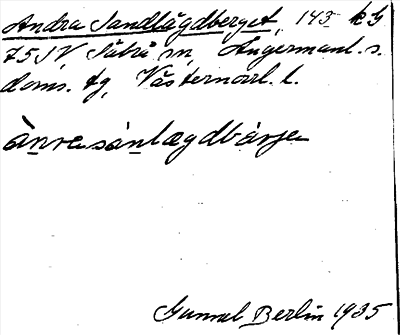 Andra Sandlägdberget, 143 kg
75 SV, Sätrå sn, Ångermanl. s.
doms. tg, Västernorrl. l.
ànresánlægdbárje
Gunnel Berlin 1935